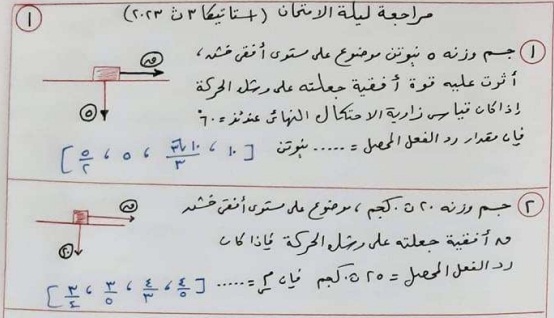 مراجعة ليلة الامتحان (استاتيكا ٣ ث ٢٠٢٣)
١
١ جسم وزنه ٥ نيوتن موضوع على مستوى أفقى خشن،
أثرت عليه قوة أفقية جعلته على وشك الحركة
إذا كان قياس زاوية الاحتكاك النهائى عندئذ = ٦٠°
فإن مقدار رد الفعل المحصل = ..... نيوتن [١٠ ، ١٠√٣/٣ ، ٥ ، ٥/٢]
ق
٥
٢ جسم وزنه ٢٠ ث.كجم ، موضوع على مستوى أفقى خشن
ق أفقية جعلته على وشك الحركة فإذا كان
رد الفعل المحصل = ٢٥ ث.كجم فإن م = ..... [٤/٥ ، ٤/٣ ، ٣/٥ ، ٣/٤]
ق
٢٠